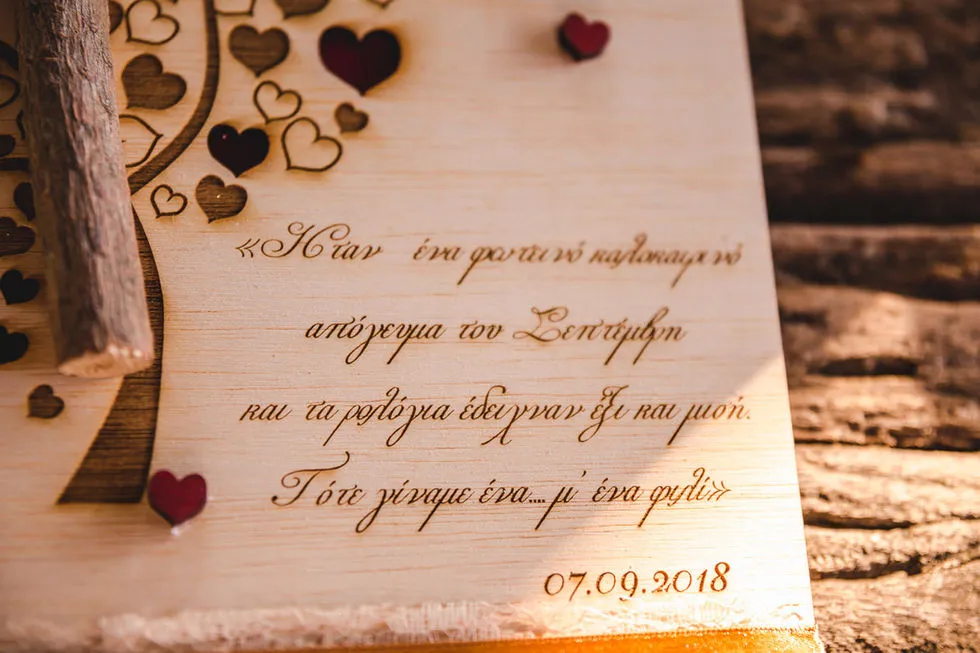 «Ήταν ένα φωτεινό καλοκαιρινό
απόγευμα του Σεπτέμβρη
και τα ρολόγια έδειχναν έξι και μισή.
Τότε γίναμε ένα.... μ' ένα φιλί»
07.09.2018